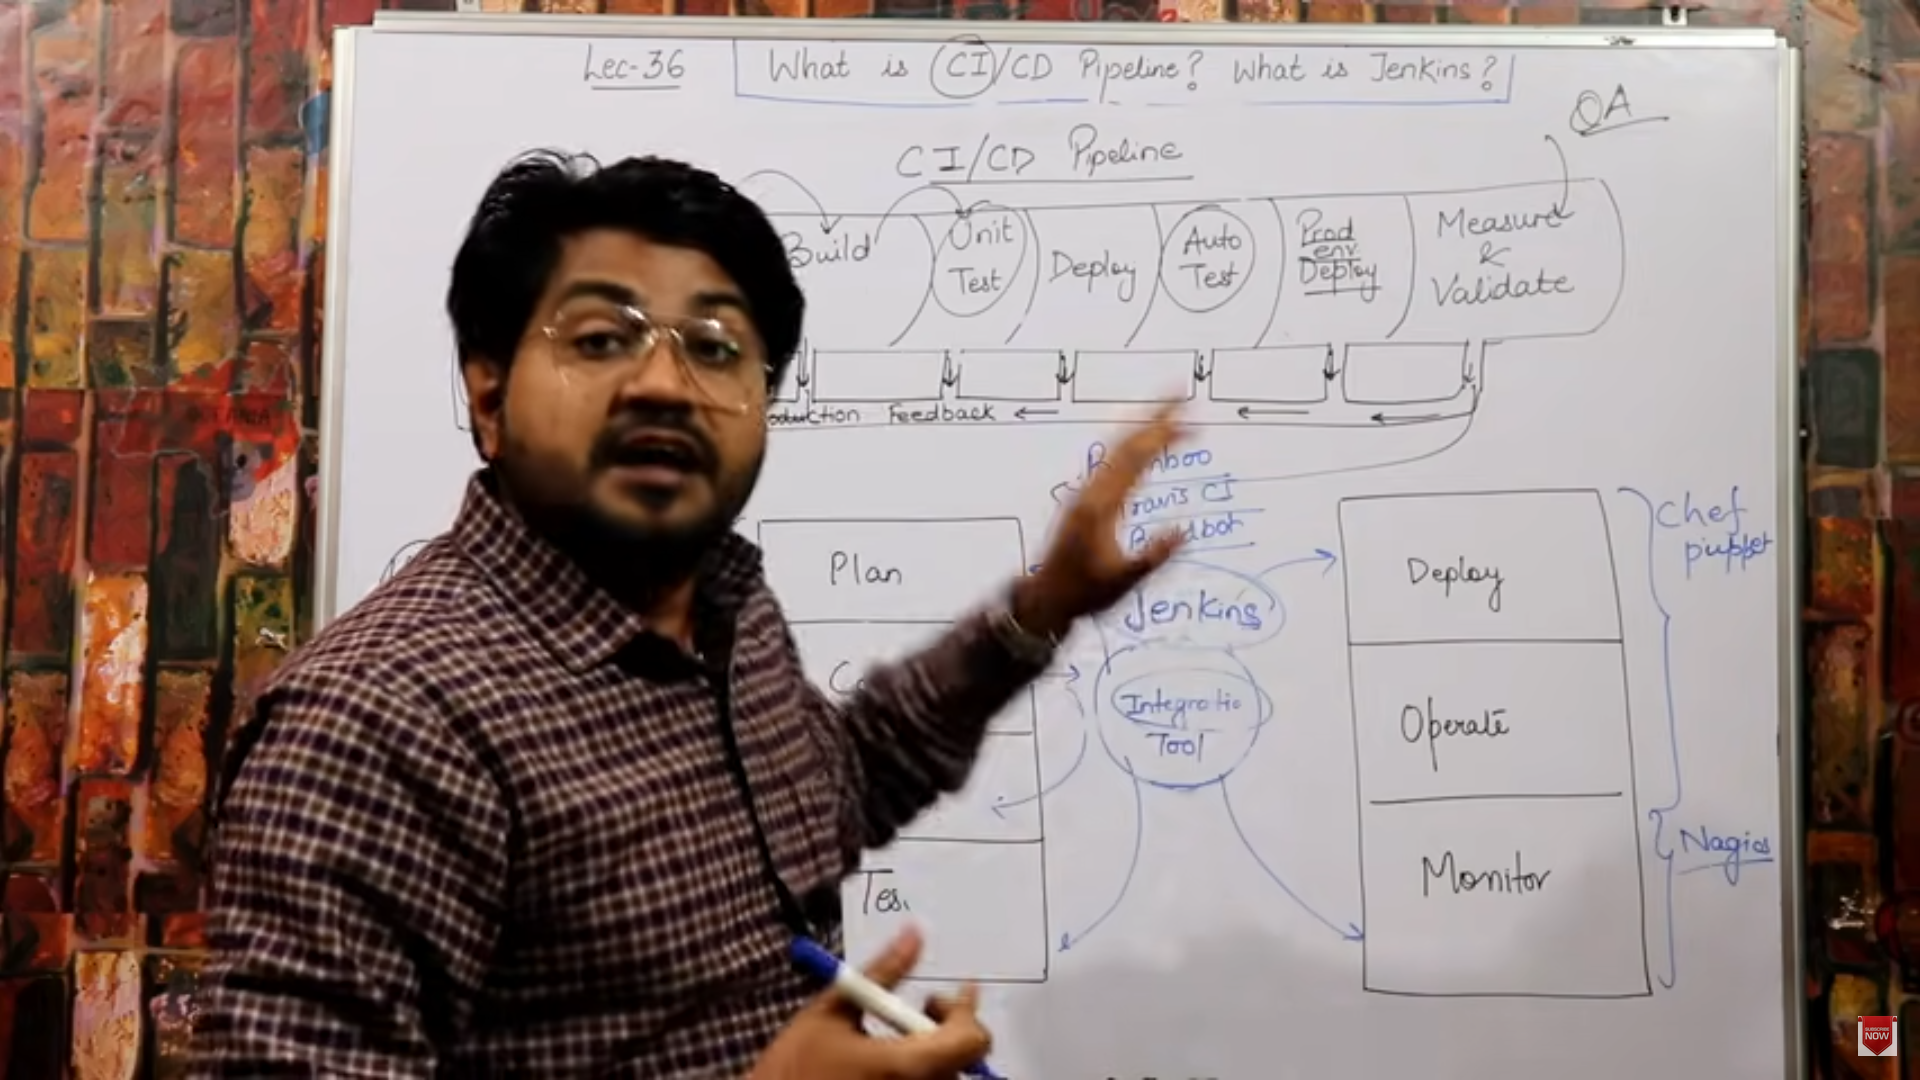 Lec-36 What is CI/CD Pipeline? What is Jenkins?
QA
CI/CD Pipeline
Build
Unit Test
Deploy
Auto Test
Prod env Deploy
Measure & Validate
Feedback
Travis CI
Plan
Jenkins
Integratio
Tool
Deploy
Operate
Monitor
Chef
puppet
Nagios
SUBSCRIBE
NOW